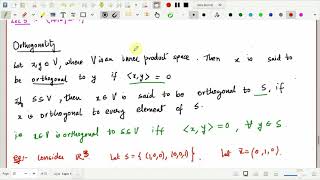 Orthogonality
Let x,y ∈ V, where V is an inner product space. Then x is said to
be orthogonal to y if <x,y> = 0
If S ⊆ V, then x ∈ V is said to be orthogonal to S, if
x is orthogonal to every element of S.
i.e x ∈ V is orthogonal to S ⊆ V iff <x,y> = 0, ∀ y ∈ S.
Eg:- Consider ℝ³ Let S = { (1,0,0), (0,0,1) }. Let x = (0,1,0)